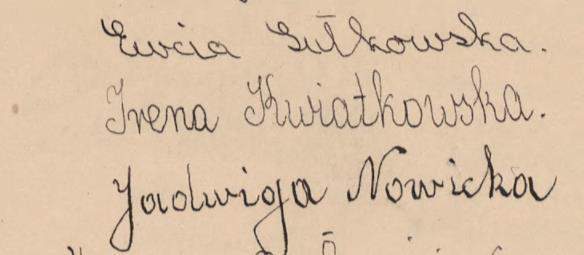 Ewcia Gutkowska.
Irena Kwiatkowska.
Jadwiga Nowicka